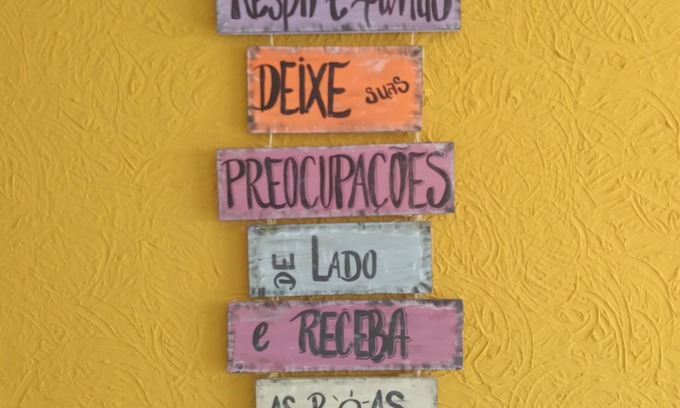 Respire fundo
DEIXE suas
PREOCUPAÇÕES
DE LADO
e RECEBA
AS BOAS